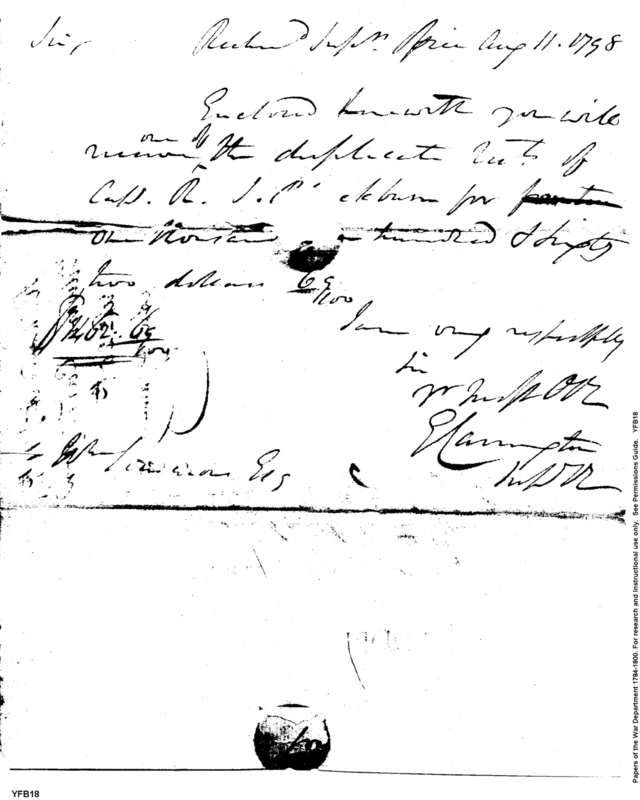 Sir, Richmond Suprs Office Aug 11. 1798
Enclosed herewith you will
receive one of the duplicate rects of
Capt. R. S. Blackburn for
one thousand hundred & sixty
two dollars 69/100
I am very respectfully
Sir
yr Most Obt
E Carrington
Supr
Simmons Esq
Papers of the War Department 1784-1800. For research and Instructional use only. See Permissions Guide. YFB18
YFB18